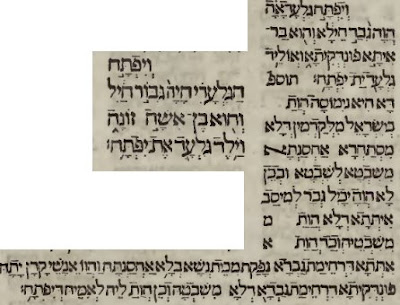 ויפתח גלעדאה
הוה גבר חילא והוא בר
איתא פונדקיתא ואוליד
גלעד ית יפתח׃ תוספ
דא היא נימוסה הות
בישראל מלקדמין דלא
מסתחרא אחסנתא
משבטא לשבטא ובכן
לא הוה יכיל גבר למיסב
איתתא דלא הות מ
משבטיה וכד הות א
אתתא דרחימת גברא נפקת מבית נשא בלא אחסנתא והוו אנשי קרן יתה
פונדקיתא דרחימת גברא דלא משבטה וכן הות ליה לאמיה דיפתח׃
ויפתח
הגלעדי היה גבור חיל
והוא בן אשה זונה
ויולד גלעד את יפתח׃